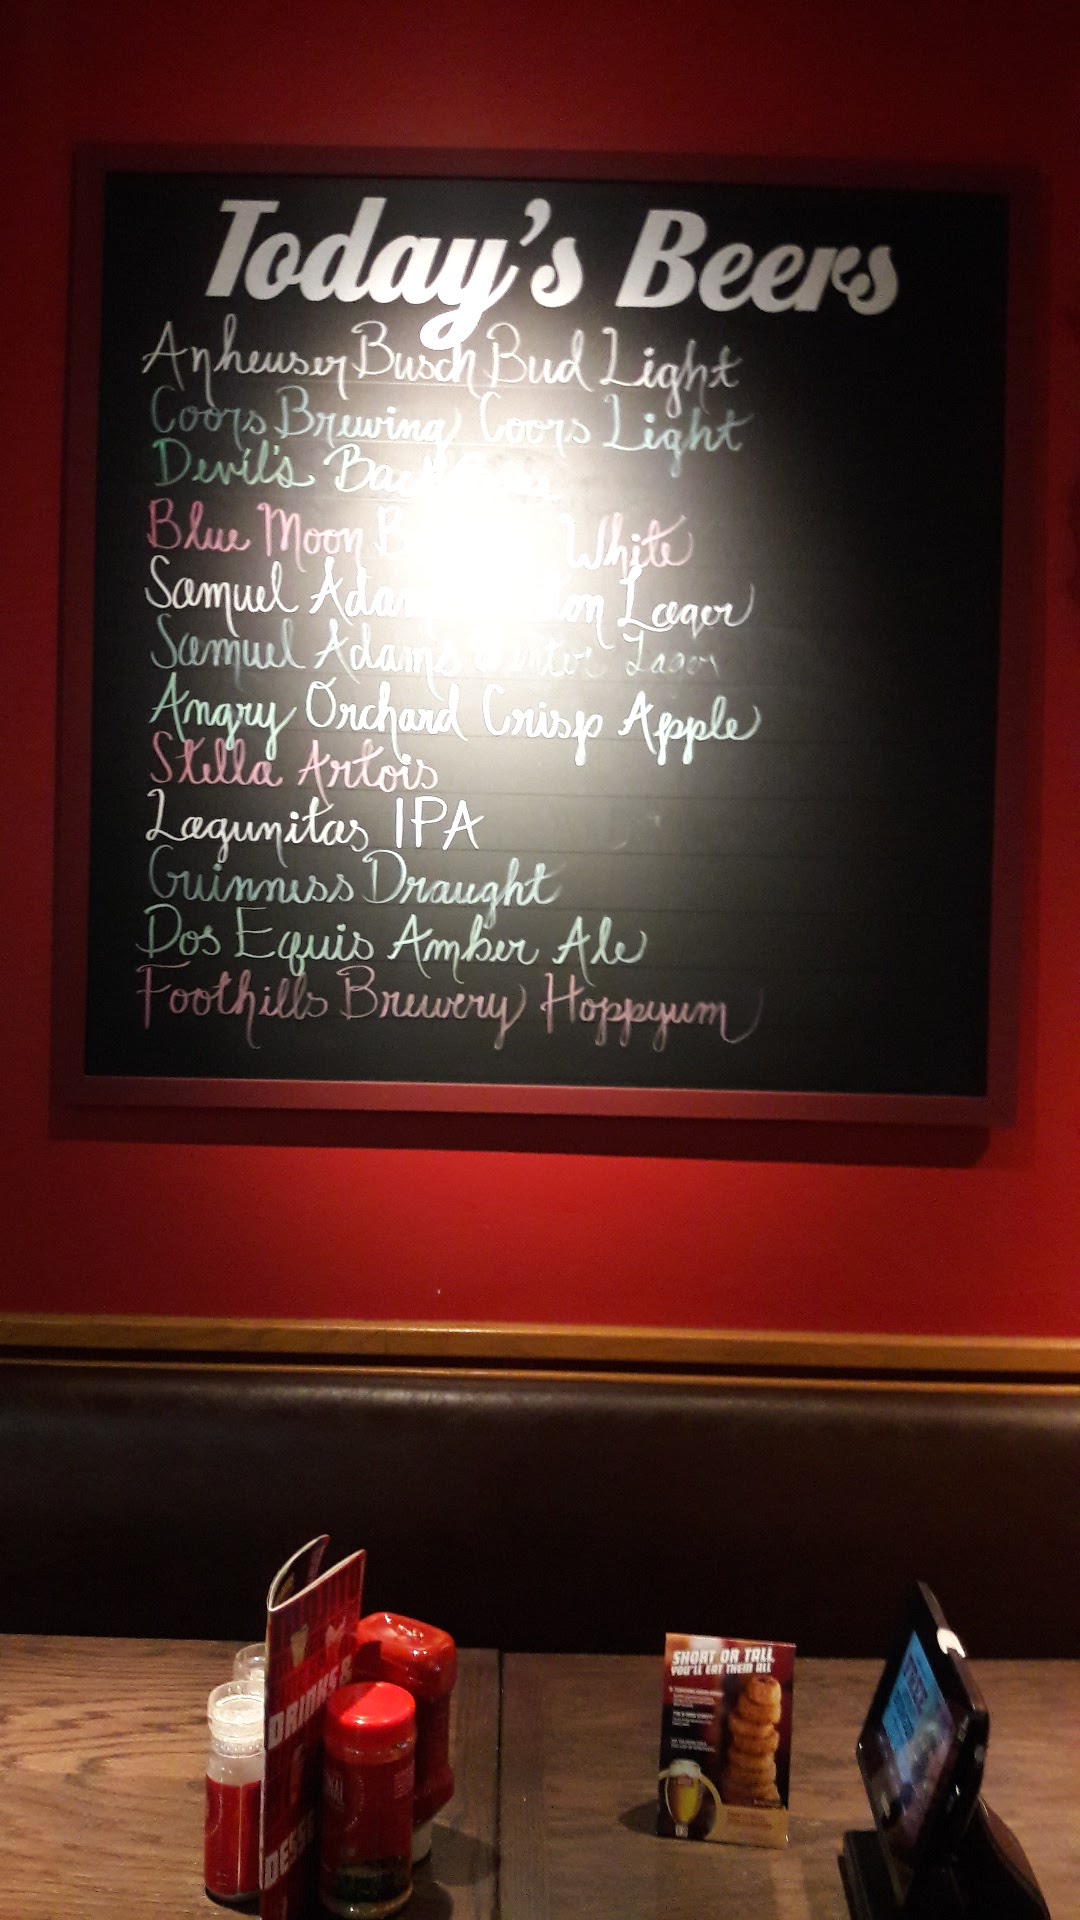 Today's Beers
Anheuser Busch Bud Light
Coors Brewing Coors Light
Devil's
Blue Moon White
Samuel Lager
Samuel Adams Winter Lager
Angry Orchard Crisp Apple
Stella Artois
Lagunitas IPA
Guinness Draught
Dos Equis Amber Ale
Foothills Brewery Hoppyum
DRINKS
DESSE
SHORT OR TALL,
YOU'LL EAT THEM ALL